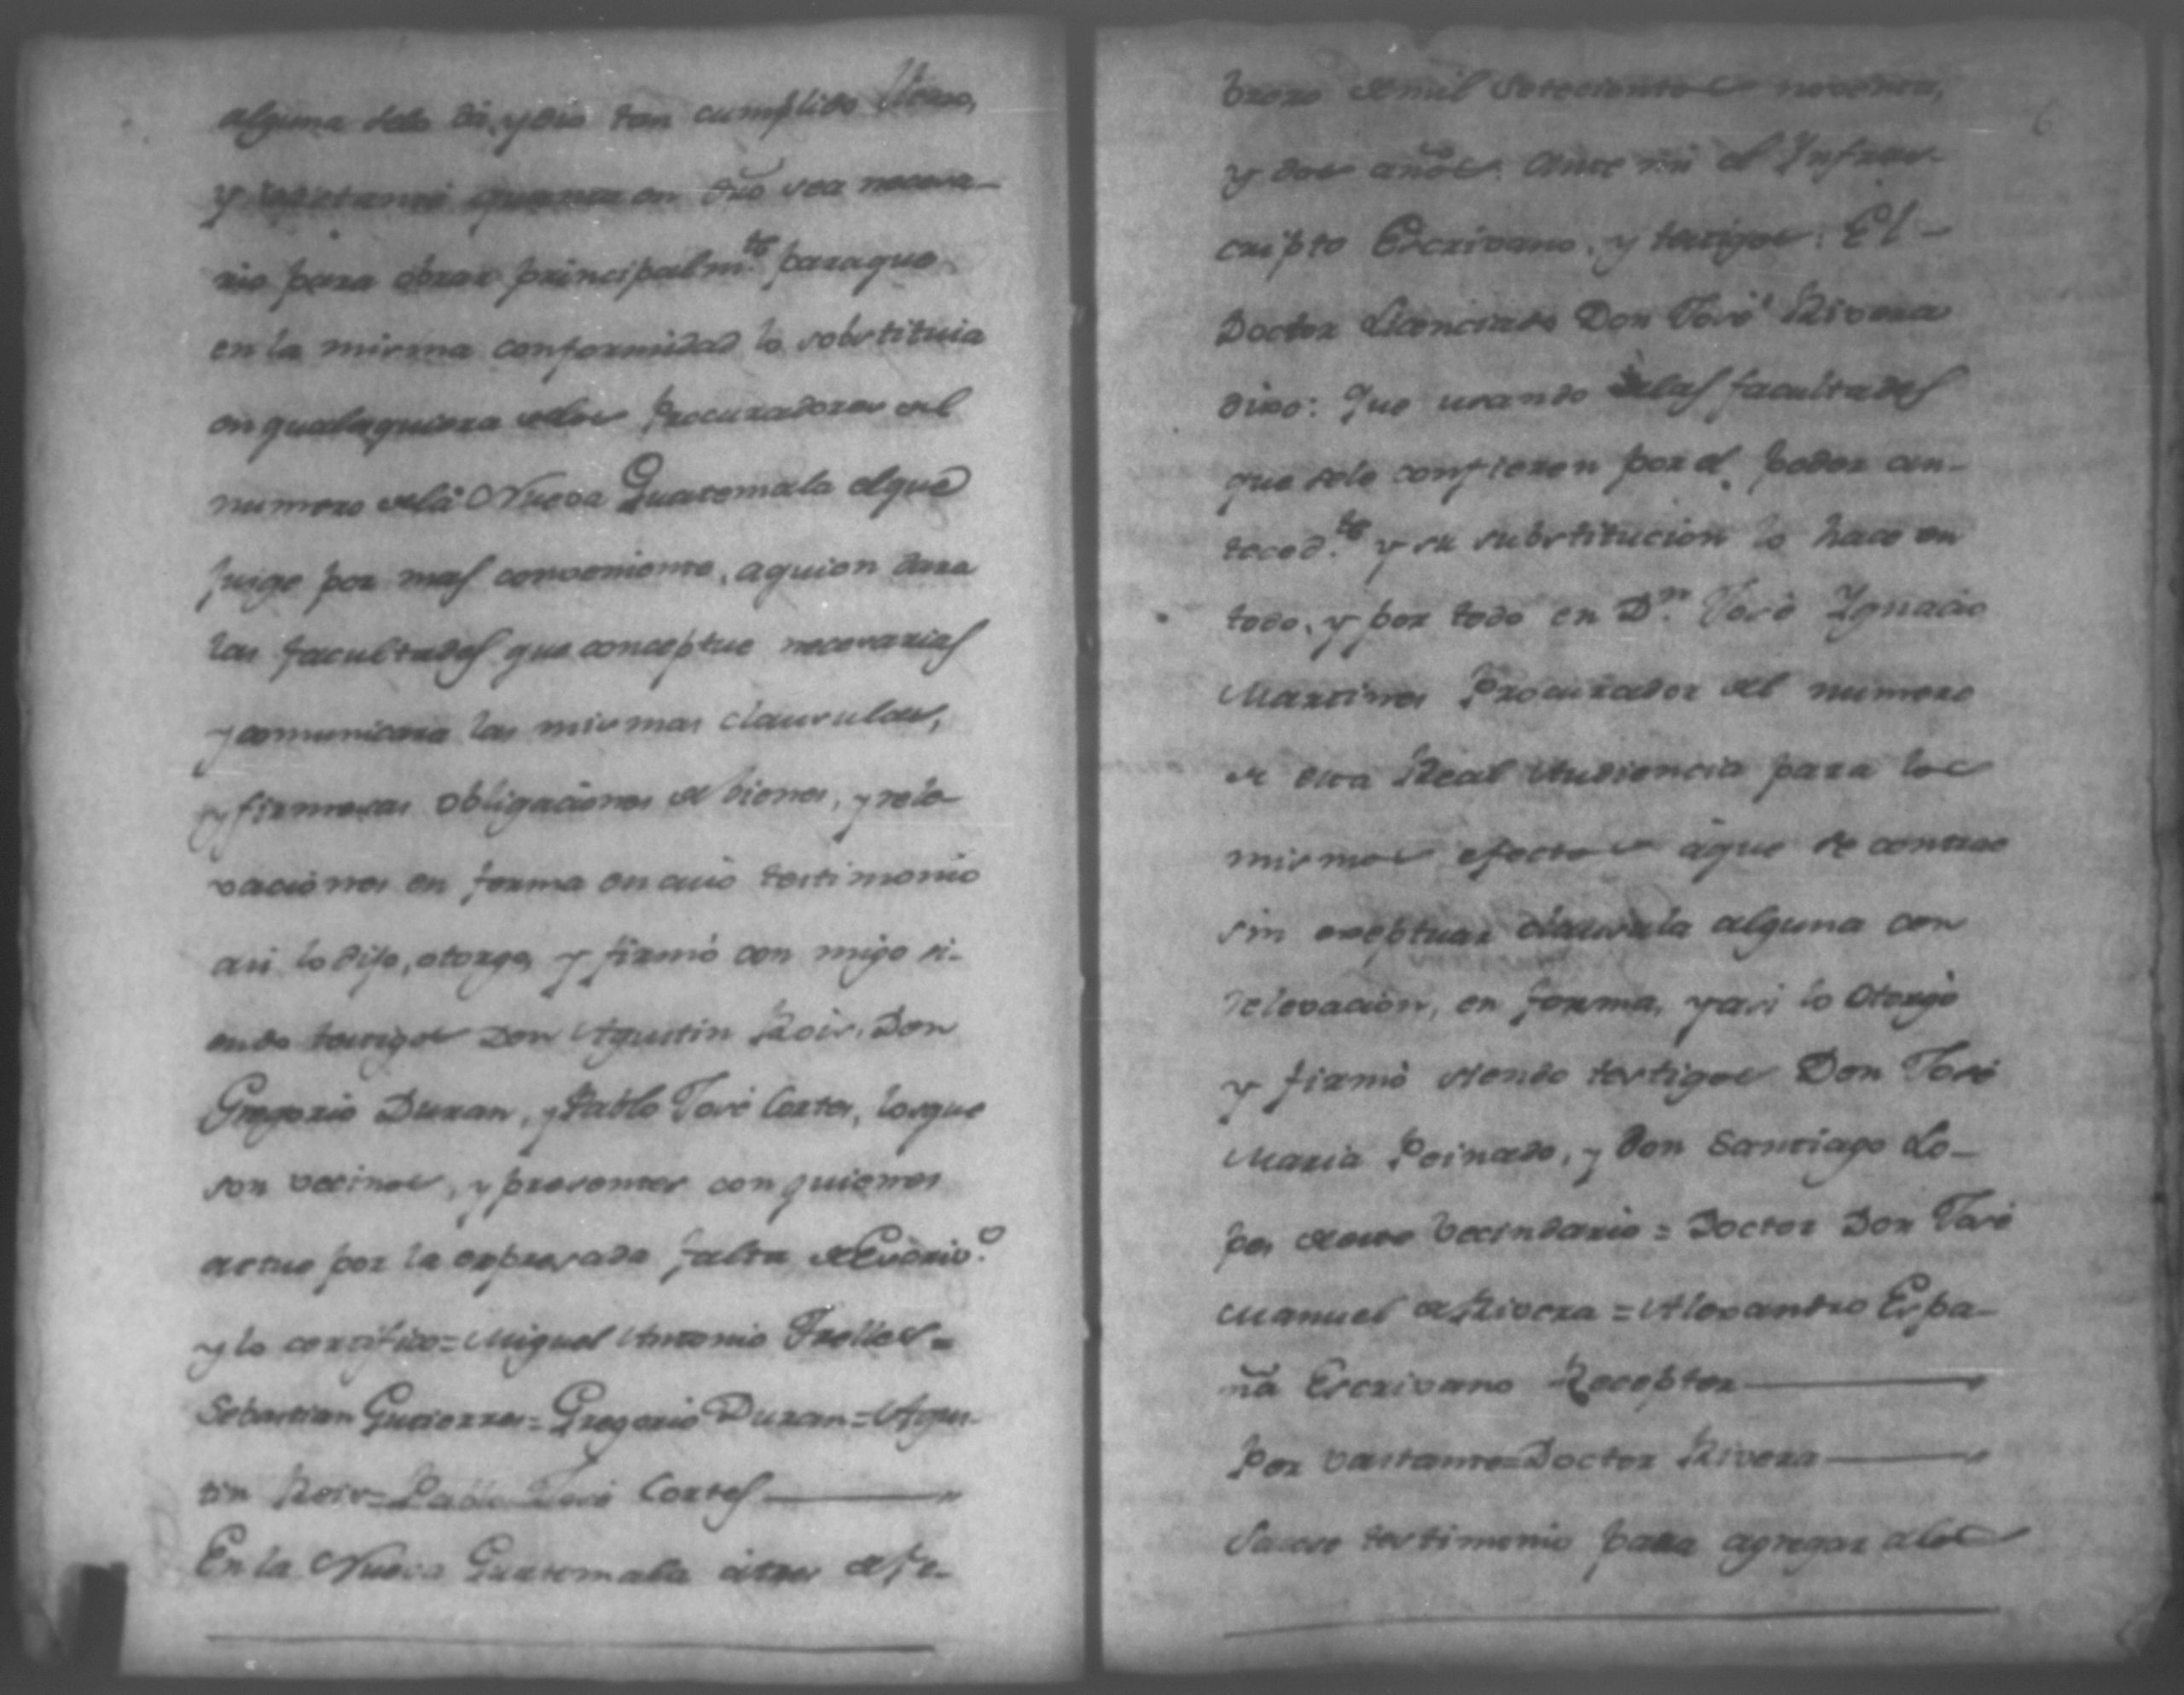 alguna selo dá, y dio tan cumplido lleno,
y bastante quanto en dro sea necesa-
rio para obrar principalm.te paraque
en la misma conformidad lo sobstituia
en qualesquiera delos Procuradores del
numero dela Nueva Guatemala elque
juige por mas conveniente, aquien dara
las facultades que conceptue necesarias
y comunicara las mismas clausulas,
y firmesas obligaciones de bienes, y rele-
vaciones en forma en cuio testimonio
asi lo dijo, otorgo, y firmó con migo si-
endo testigos Don Agustin Rois, Don
Gregorio Duran, y Pablo José Cortes, losque
son vecinos, y presentes con quienes
actuo por la expresada falta de Escrivo.
y lo certifico = Miguel Antonio Trelles =
Sebastian Gutierres = Gregorio Duran = Agus-
tin Rois = Pablo José Cortes
En la Nueva Guatemala átres defe-
brero demil setecientos noventa,
y dos años. Ante mi el Infraes-
cripto Escrivano, y testigos: El
Doctor Licenciado Don José Rivera
dixo: Que usando delas facultades
que sele confieren por el poder an-
teced.te y su substitucion lo hace en
todo, y por todo en Dn. José Ygnacio
Martines Procurador del numero
de esta Real Audiencia para los
mismos efectos áque se contrae
sin exeptuar clausula alguna con
relevacion, en forma, y asi lo Otorgó
y firmó siendo testigos Don José
Maria Peinado, y Don Santiago Lo-
pes deeste Vecindario = Doctor Don José
Manuel de Rivera = Alexandro Espa-
ña Escrivano Receptor
Por bastante = Doctor Rivera
Saquese testimonio para agregar alos
6